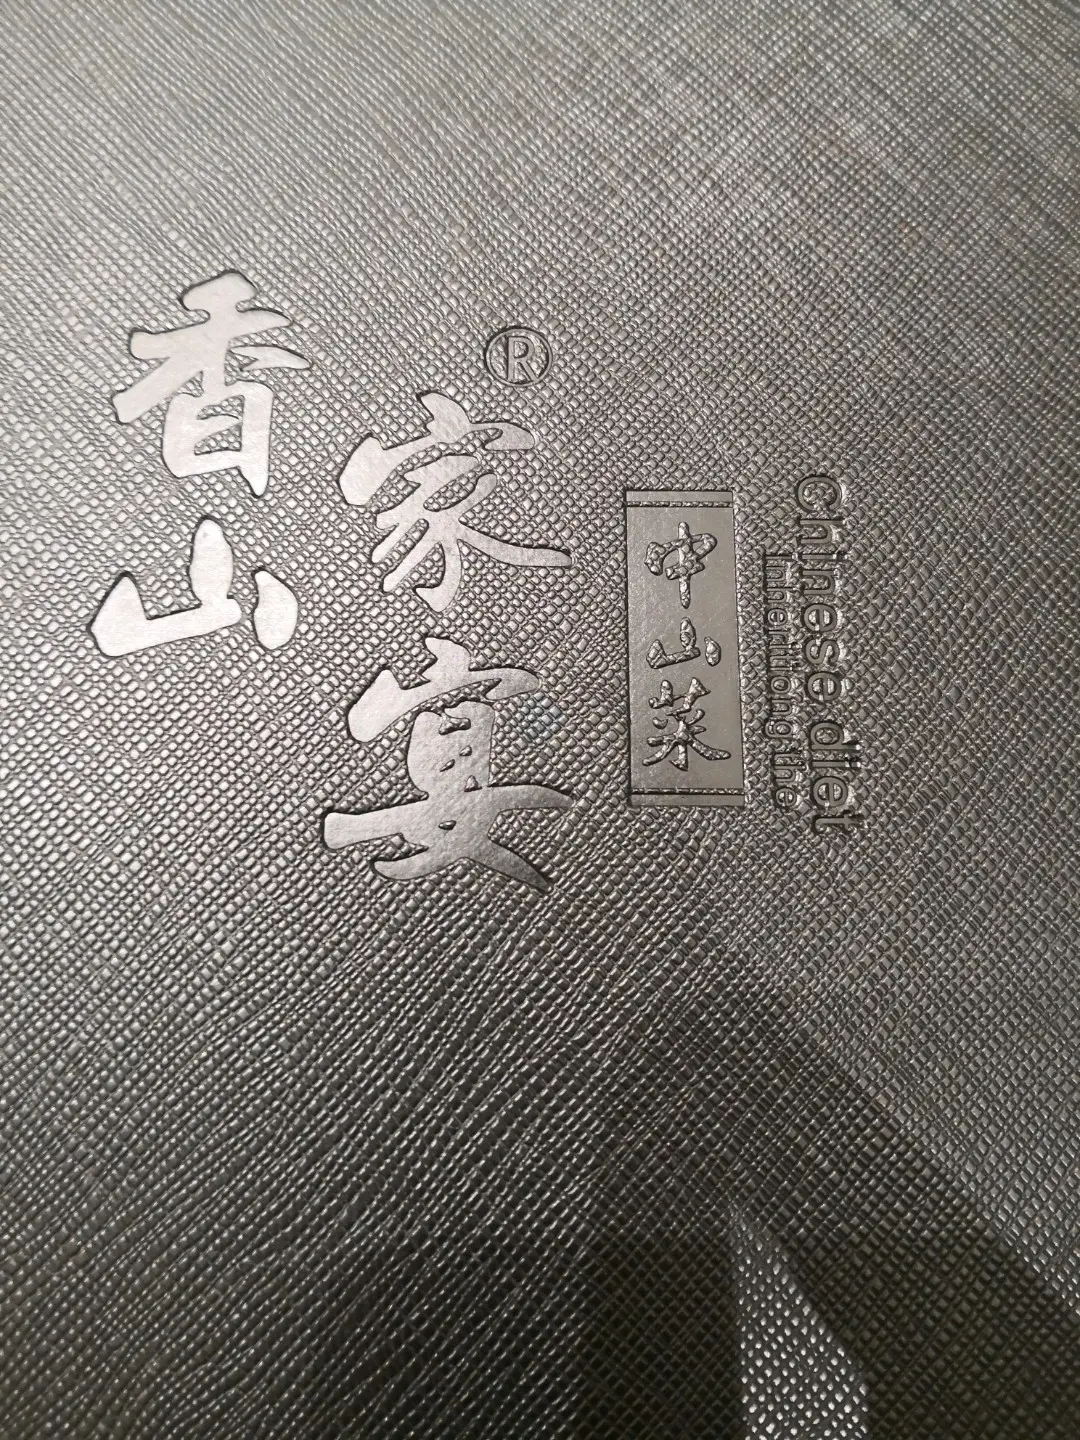 香山
家宴®
中山菜
Inheritiong the
chinese diet